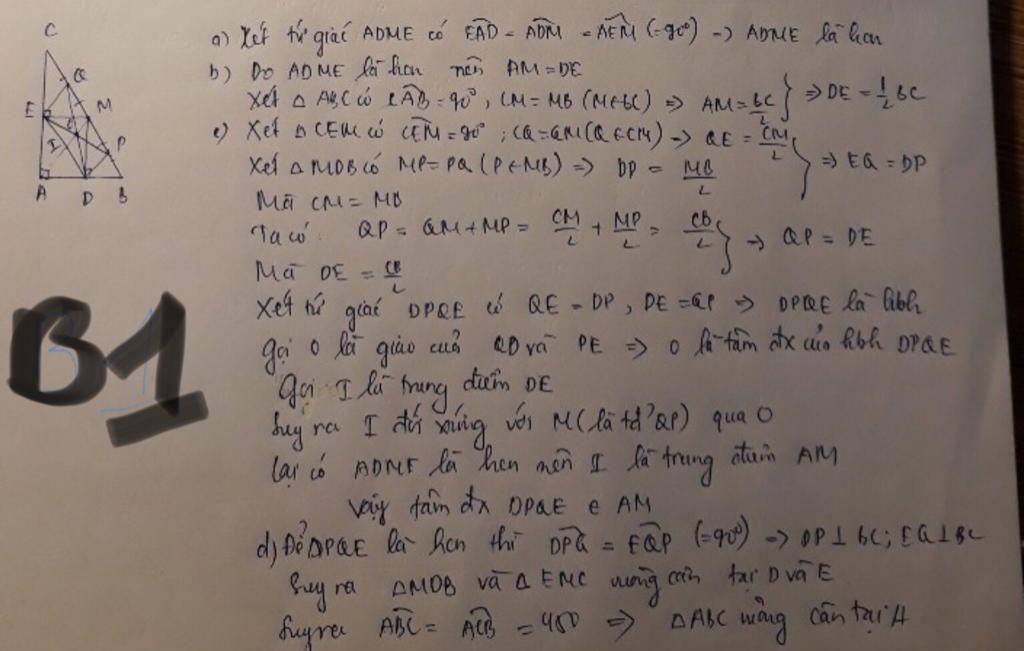 C
Q
E
M
I
P
A
D
B
a) Xét tứ giác ADME có EAD = ADM = AEM (=90°) → ADME là hcn
b) Do ADME là hcn nên AM = DE
Xét △ ABC có CAB = 90°, CM = MB (M∈BC) ⇒ AM = BC/2 } ⇒ DE = 1/2 BC
c) Xét △ CEM có CEM = 90° ; CQ = QM (Q ∈ CM) → QE = CM/2
Xét △ MDB có MP = PQ (P ∈ MB) ⇒ DP = MB/2 } ⇒ EQ = DP
Mà CM = MB
Ta có QP = QM + MP = CM/2 + MP/2 = CB/2 } → QP = DE
Mà DE = CB/2
Xét tứ giác DPQE có QE = DP, DE = QP ⇒ DPQE là hbh
Gọi O là giao cuả QD và PE ⇒ O là tâm đx của hbh DPQE
Gọi I là trung điểm DE
Suy ra I đối xứng với M (là tđ QP) qua O
Lại có ADME là hcn nên I là trung điểm AM
Vậy tâm đx DPQE ∈ AM
d) Để DPQE là hcn thì DPQ = EQP (=90°) → DP ⊥ BC; EQ ⊥ BC
Suy ra △MDB và △ EMC vuông cân tại D và E
Suy ra ABC = ACB = 450 ⇒ △ABC vuông cân tại A
B1